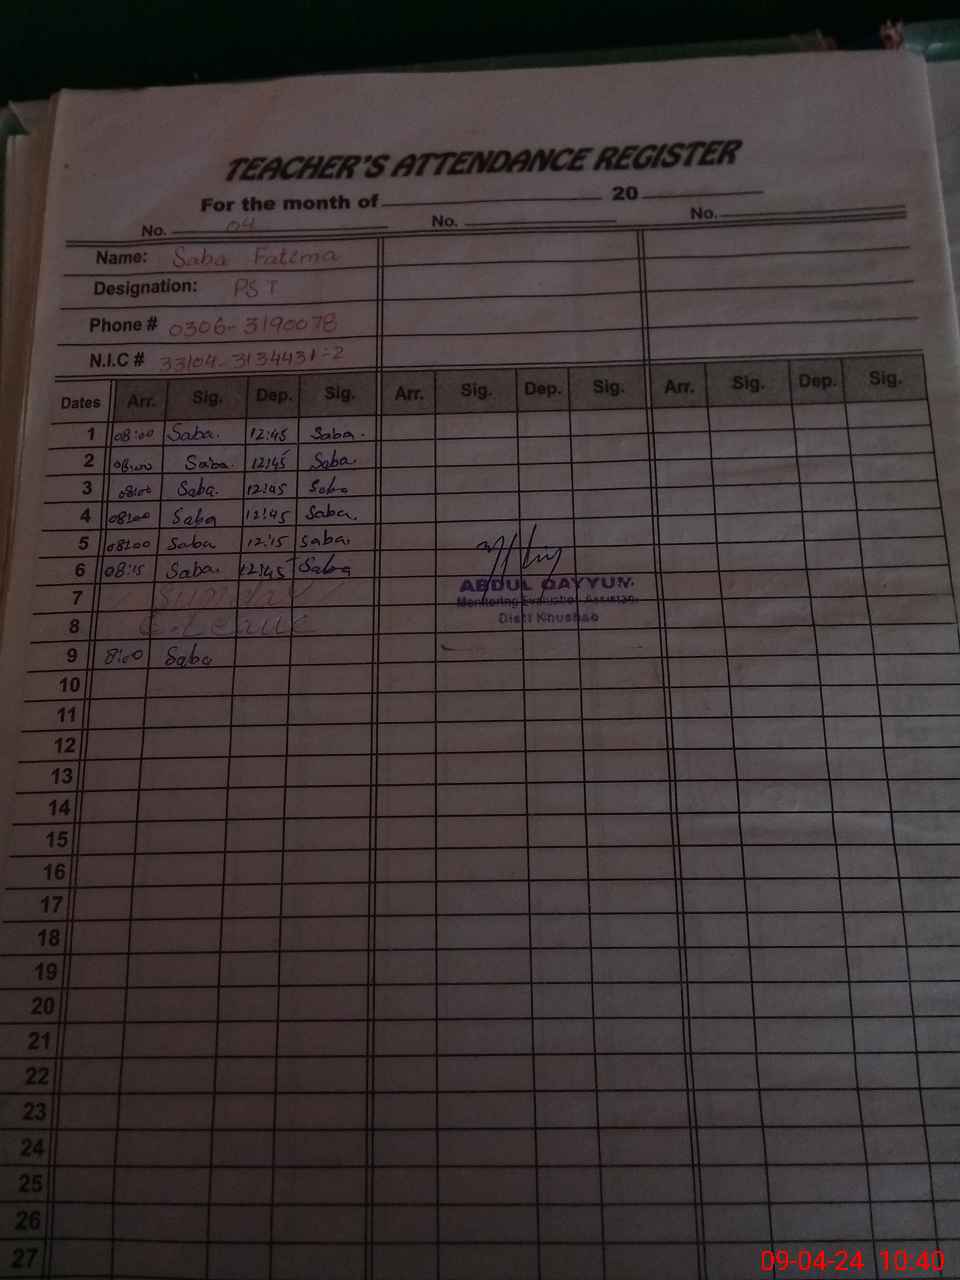 TEACHER'S ATTENDANCE REGISTER
For the month of 20
No. 04 No. No.
Name: Saba Fatima
Designation: PST
Phone # 0306-3190078
N.I.C # 33104-3134431-2
Dates Arr. Sig. Dep. Sig. Arr. Sig. Dep. Sig. Arr. Sig. Dep. Sig.
1 08:00 Saba. 12:45 Saba.
2 08:00 Saba. 12:45 Saba.
3 08:00 Saba. 12:45 Saba
4 08:00 Saba 12:45 Saba.
5 08:00 Saba 12:15 Saba.
6 08:15 Saba. 12:45 Saba
ABDUL QAYYUM
7 Sunday
Monitoring Evaluation Assistant
8 C.Leave
Distt Khushab
9 8:00 Saba
10
11
12
13
14
15
16
17
18
19
20
21
22
23
24
25
26
27
09-04-24 10:40